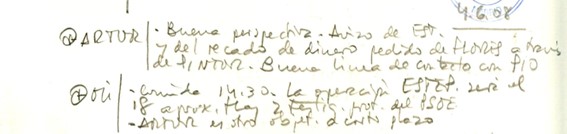 4.6.08
⊕ ARTUR / - Buena perspectiva. Aviso de EST.
y del recado de dinero pedido de FLORIS a través
de PINTOR. Buena línea de contacto con PIO
⊕ OLI / - Comida 14.30. La operación ESTEF. será el
18 aprox. Hay 2 testig. prot. del PSOE
- ARTUR es otro objet. a corto plazo